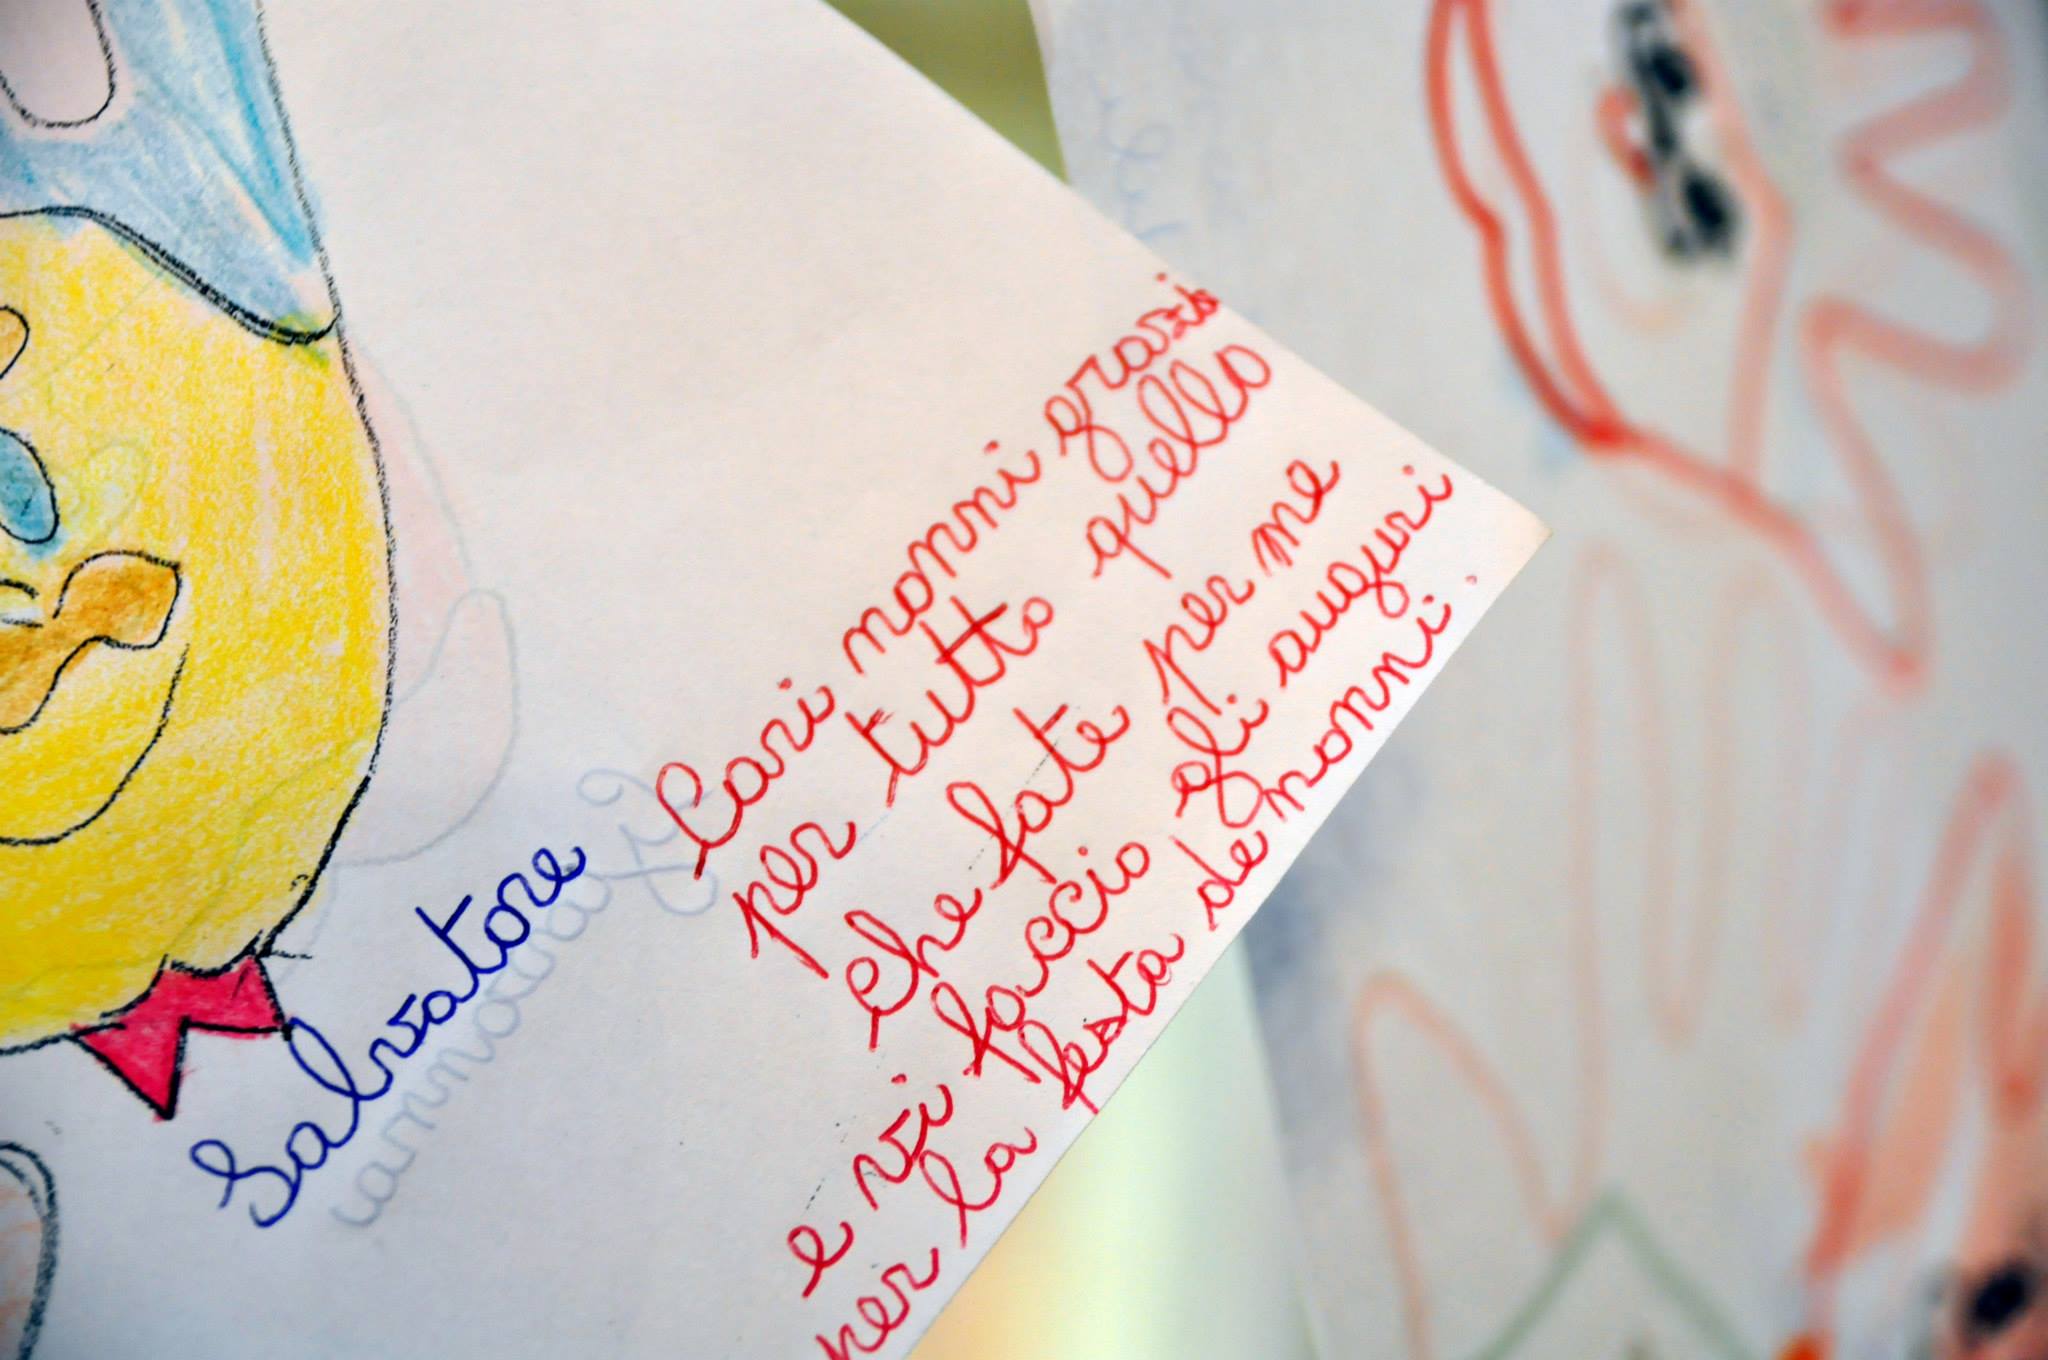 Salvatore
Cari nonni grazie
per tutto quello
che fate per me
e vi faccio gli auguri
per la festa de nonni.